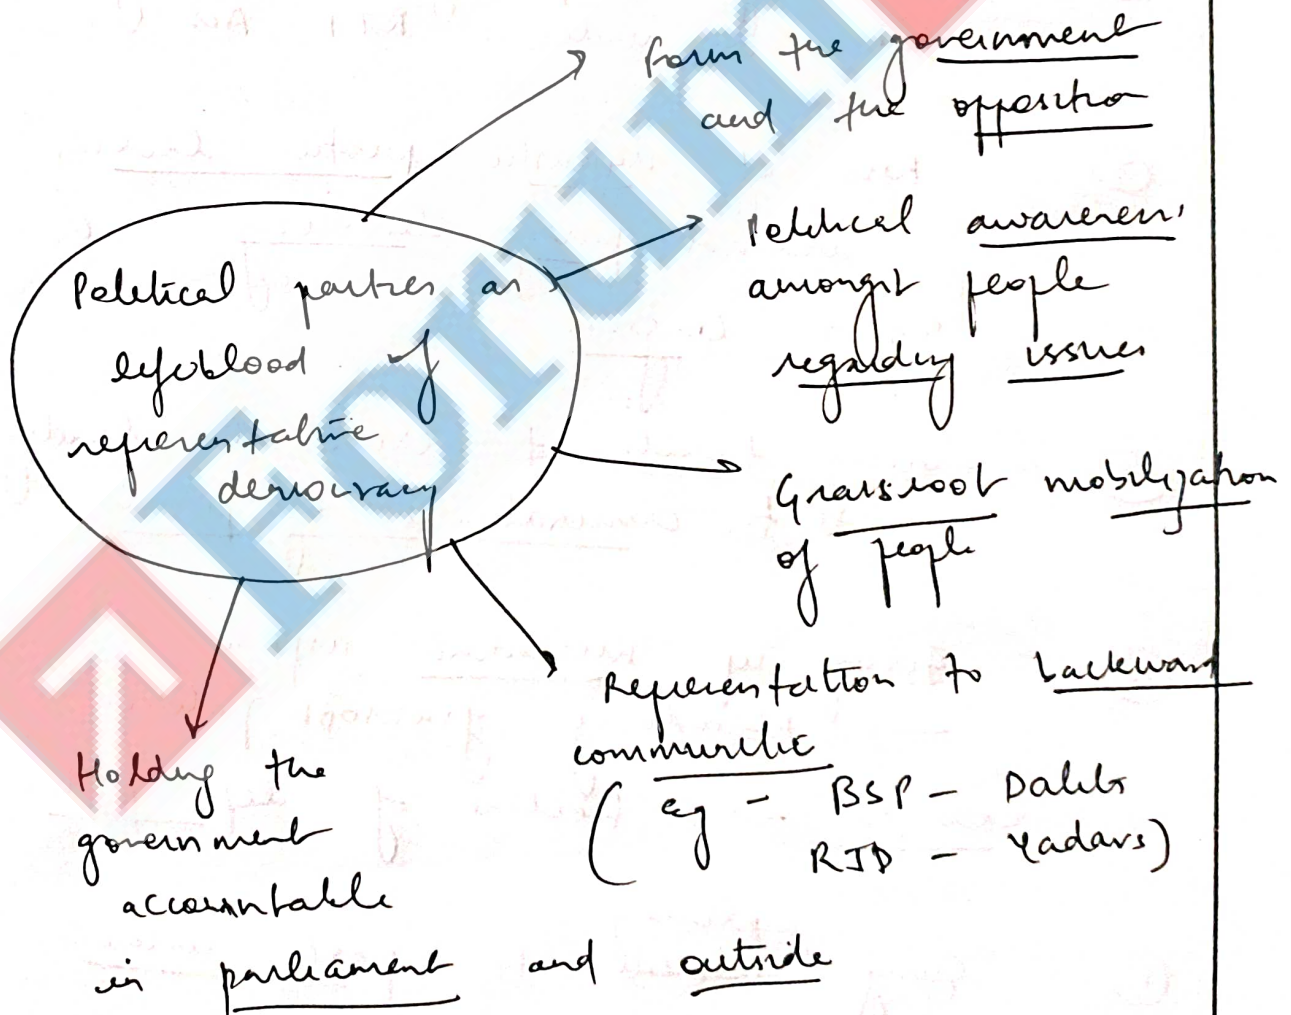 Political parties as
lifeblood of
representative
democracy
form the government
and the opposition
Political awareness
amongst people
regarding issues
Grassroot mobilization
of people
Representation to backward
communitie
(eg - BSP - Dalits
RJD - Yadavs)
Holding the
government
accountable
in parliament and outside
Forum